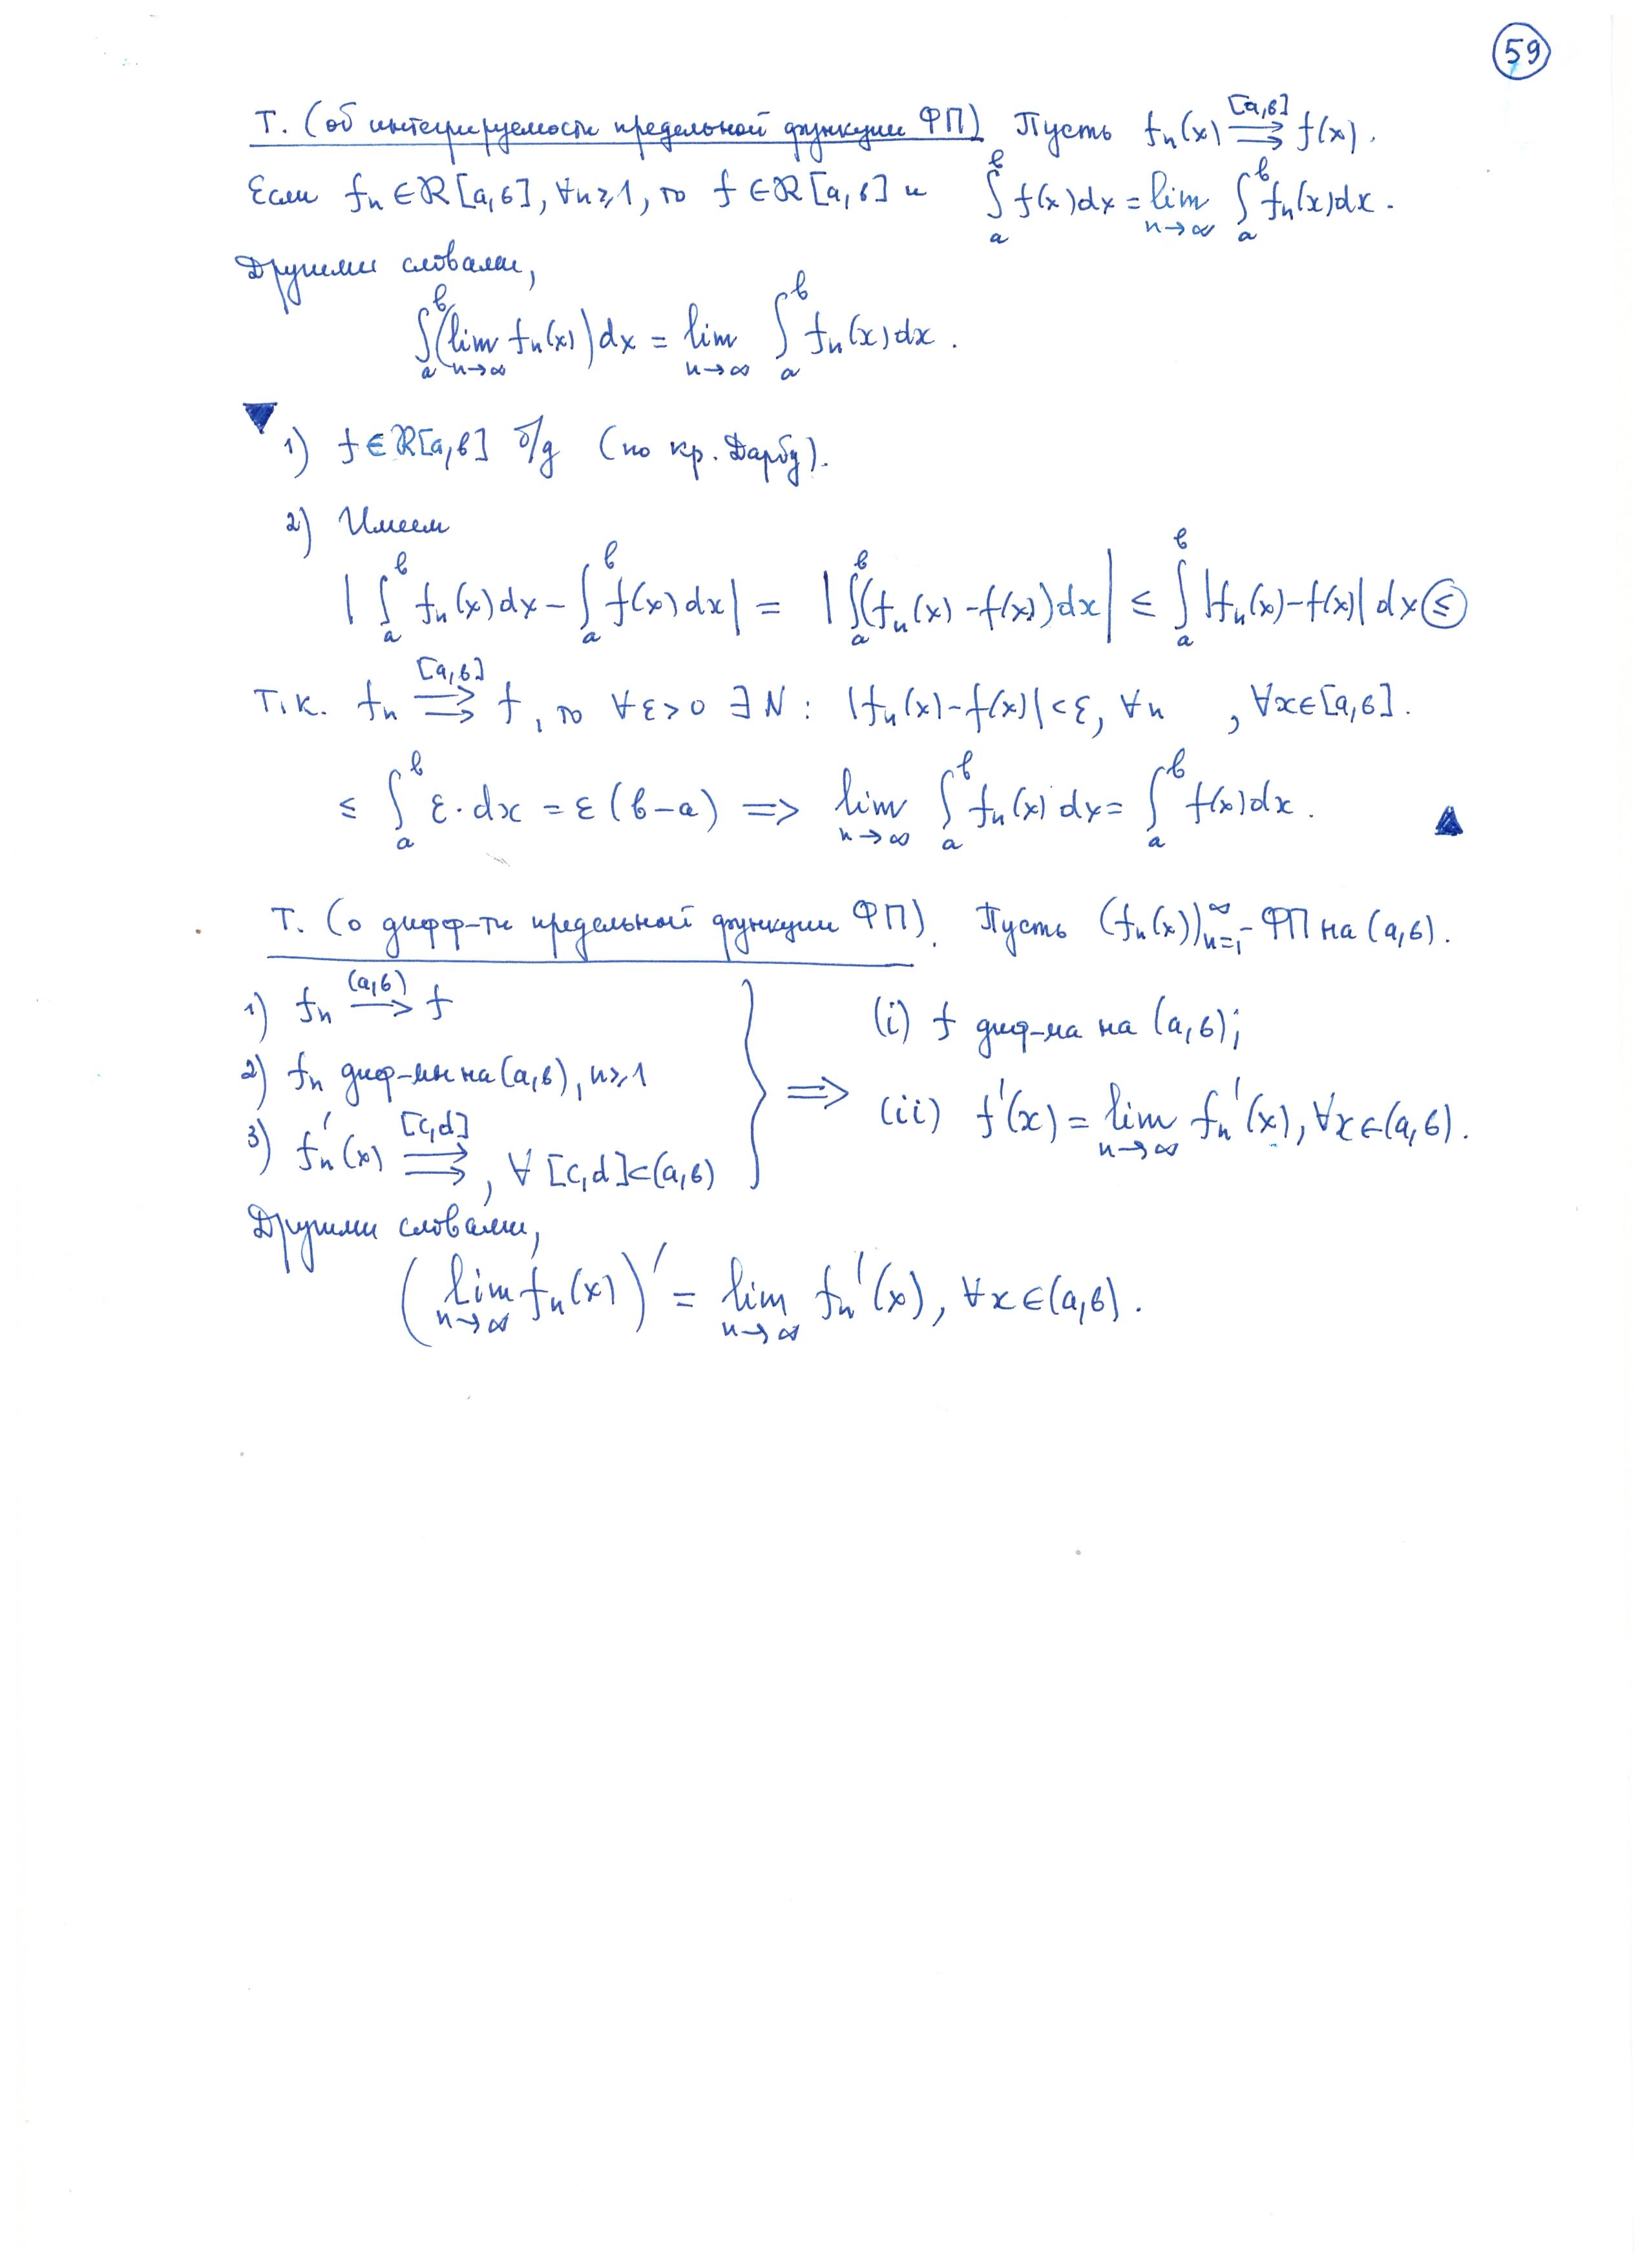 59
Т. (об интегрируемости предельной функции ФП) Пусть fₙ(x) ⇉ [a,b] f(x).
Если fₙ ∈ ℛ[a,b], ∀n≥1, то f ∈ ℛ[a,b] и ∫ₐᵇ f(x)dx = lim_{n→∞} ∫ₐᵇ fₙ(x)dx.
Другими словами,
∫ₐᵇ (lim_{n→∞} fₙ(x)) dx = lim_{n→∞} ∫ₐᵇ fₙ(x)dx.
▼
1) f ∈ ℛ[a,b] б/д (по кр. Дарбу).
2) Имеем
|∫ₐᵇ fₙ(x)dx − ∫ₐᵇ f(x)dx| = |∫ₐᵇ (fₙ(x) − f(x))dx| ≤ ∫ₐᵇ |fₙ(x) − f(x)| dx ≤
Т.к. fₙ ⇉ [a,b] f, то ∀ε>0 ∃N : |fₙ(x) − f(x)| < ε, ∀n , ∀x∈[a,b].
≤ ∫ₐᵇ ε·dx = ε(b−a) => lim_{n→∞} ∫ₐᵇ fₙ(x)dx = ∫ₐᵇ f(x)dx. ▲
Т. (о дифф-ти предельной функции ФП). Пусть (fₙ(x))_{n=1}^∞ - ФП на (a,b).
1) fₙ → (a,b) f
2) fₙ диф-мы на (a,b), n≥1
3) fₙ′(x) ⇉ [c,d] , ∀ [c,d]⊂(a,b)
} =>
(i) f диф-ма на (a,b);
(ii) f′(x) = lim_{n→∞} fₙ′(x), ∀x∈(a,b).
Другими словами,
(lim_{n→∞} fₙ(x))′ = lim_{n→∞} fₙ′(x), ∀x∈(a,b).